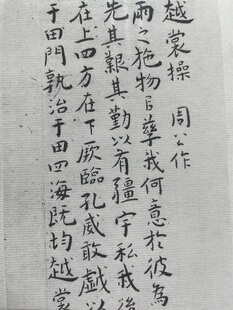 越裳操 周公作
雨之施物㠯孳我何意於彼為
先其艱其勤以有疆宇私我後
在上四方在下厥臨孔威敢戲以
于田門孰治于田四海既均越裳